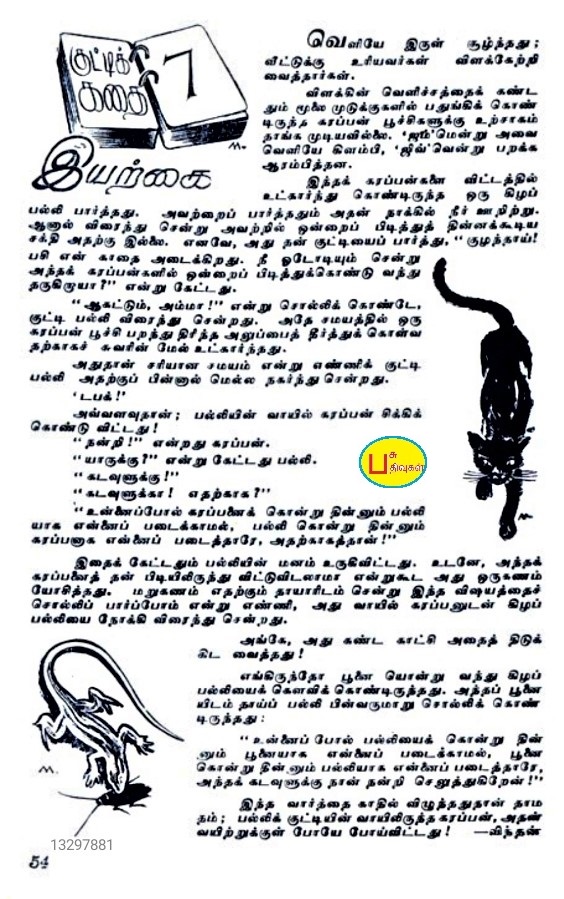 குட்டிக்
கதை
7
இயற்கை
வெளியே இருள் சூழ்ந்தது;
வீட்டுக்கு உரியவர்கள் விளக்கேற்றி
வைத்தார்கள்.
விளக்கின் வெளிச்சத்தைக் கண்ட
தும் மூலை முடுக்குகளில் பதுங்கிக் கொண்
டிருந்த கரப்பன் பூச்சிகளுக்கு உற்சாகம்
தாங்க முடியவில்லை. 'ஜம்'மென்று அவை
வெளியே கிளம்பி, 'ஜிவ்'வென்று பறக்க
ஆரம்பித்தன.
இந்தக் கரப்பன்களை விட்டத்தில்
உட்கார்ந்து கொண்டிருந்த ஒரு கிழப்
பல்லி பார்த்தது. அவற்றைப் பார்த்ததும் அதன் நாக்கில் நீர் ஊறிற்று.
ஆனால் விரைந்து சென்று அவற்றில் ஒன்றைப் பிடித்துத் தின்னக்கூடிய
சக்தி அதற்கு இல்லை. எனவே, அது தன் குட்டியைப் பார்த்து, "குழந்தாய்!
பசி என் காதை அடைக்கிறது. நீ ஓடோடியும் சென்று
அந்தக் கரப்பன்களில் ஒன்றைப் பிடித்துக்கொண்டு வந்து
தருகிறாயா?" என்று கேட்டது.
"ஆகட்டும், அம்மா!" என்று சொல்லிக் கொண்டே,
குட்டி பல்லி விரைந்து சென்றது. அதே சமயத்தில் ஒரு
கரப்பன் பூச்சி பறந்து திரிந்த அலுப்பைத் தீர்த்துக் கொள்வ
தற்காகச் சுவரின் மேல் உட்கார்ந்தது.
அதுதான் சரியான சமயம் என்று எண்ணிக் குட்டி
பல்லி அதற்குப் பின்னால் மெல்ல நகர்ந்து சென்றது.
'டபக்!'
அவ்வளவுதான்; பல்லியின் வாயில் கரப்பன் சிக்கிக்
கொண்டு விட்டது!
"நன்றி!" என்றது கரப்பன்.
"யாருக்கு?" என்று கேட்டது பல்லி.
"கடவுளுக்கு!"
"கடவுளுக்கா! எதற்காக?"
"உன்னைப்போல் கரப்பனைக் கொன்று தின்னும் பல்லி
யாக என்னைப் படைக்காமல், பல்லி கொன்று தின்னும்
கரப்பனாக என்னைப் படைத்தாரே, அதற்காகத்தான்!"
பசு
பதிவுகள்
இதைக் கேட்டதும் பல்லியின் மனம் உருகிவிட்டது. உடனே, அந்தக்
கரப்பனைத் தன் பிடியிலிருந்து விட்டுவிடலாமா என்றுகூட அது ஒருகணம்
யோசித்தது. மறுகணம் எதற்கும் தாயாரிடம் சென்று இந்த விஷயத்தைச்
சொல்லிப் பார்ப்போம் என்று எண்ணி, அது வாயில் கரப்பனுடன் கிழப்
பல்லியை நோக்கி விரைந்து சென்றது.
அங்கே, அது கண்ட காட்சி அதைத் திடுக்
கிட வைத்தது!
எங்கிருந்தோ பூனை யொன்று வந்து கிழப்
பல்லியைக் கௌவிக் கொண்டிருந்தது. அந்தப் பூனை
யிடம் தாய்ப் பல்லி பின்வருமாறு சொல்லிக் கொண்
டிருந்தது:
"உன்னைப் போல் பல்லியைக் கொன்று தின்
னும் பூனையாக என்னைப் படைக்காமல், பூனை
கொன்று தின்னும் பல்லியாக என்னைப் படைத்தாரே,
அந்தக் கடவுளுக்கு நான் நன்றி செலுத்துகிறேன்!"
இந்த வார்த்தை காதில் விழுந்ததுதான் தாம
தம்; பல்லிக் குட்டியின் வாயிலிருந்த கரப்பன், அதன்
வயிற்றுக்குள் போயே போய்விட்டது! —விந்தன்
13297881
54